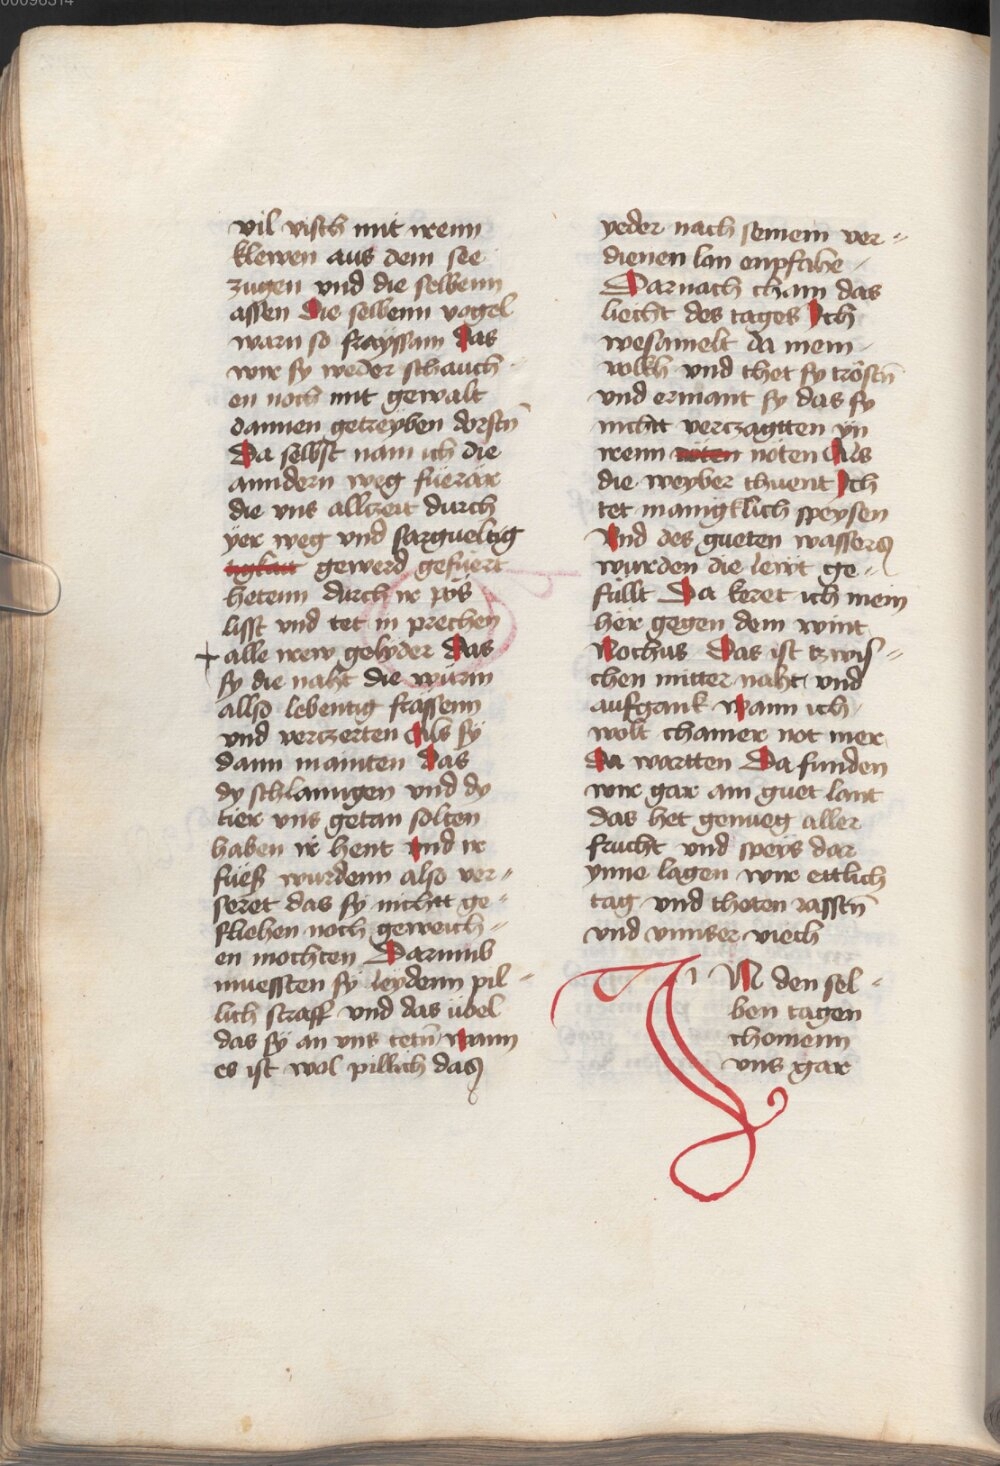 00096314
vil visch mit irenn
klewen aus dem see
zugen vnd die selbenn
assen Die selbenn vogel
warn so frayssam Das
wir sy weder schauch
en noch mit gewalt
dannen getreyben dorstn̄
Da selbst nam ich die
anndern weg füerär
die vns allczeit durch
yer weg vnd sargueltig
gewerd gefüert
hetenn durch ir pös
lisst vnd tet in prechen
alle irew gelyder Das
sy die naht die würm
allso lebentig frassenn
vnd verczerten Als sy
dann mainten Das
dy schlanngen vnd dy
tier vns getan solten
haben ir hent vnd ir
füeß wurdenn also ver-
seret das sy nichtt ge-
fliehen noch geweich-
en mochten Darumb
muessten sy leydenn pil-
lich straff vnd das übel
das sy an vns tetn̄ Wann
es ist wol pillich das
yeder nach seinem ver-
dienen lan enpfahe
Darnach cham das
liecht des tages Ich
wesamelt da mein
volkh vnd thet sy tröstn̄
vnd ermant sy das sy
nichtt verczagtten yn
irenn nöten Als
die weyber thuent Ich
tet mänigklich speysen
Vnd des gueten wassers
wurden die lewt ge-
füllt Da keret ich mein
her gegen dem wint
Nochus Das ist tzwis-
chen mitter naht vnd
aufgank Wann ich
wolt chainer not mer
Da wartten Da funden
wir gar ain guet lant
das het genueg aller
frucht vnd speys dar
ynne lagen wir ettlich
tag vnd theten rasstn̄
vnd vnnser viech
IN den sel-
ben tagen
chomenn
vns gar